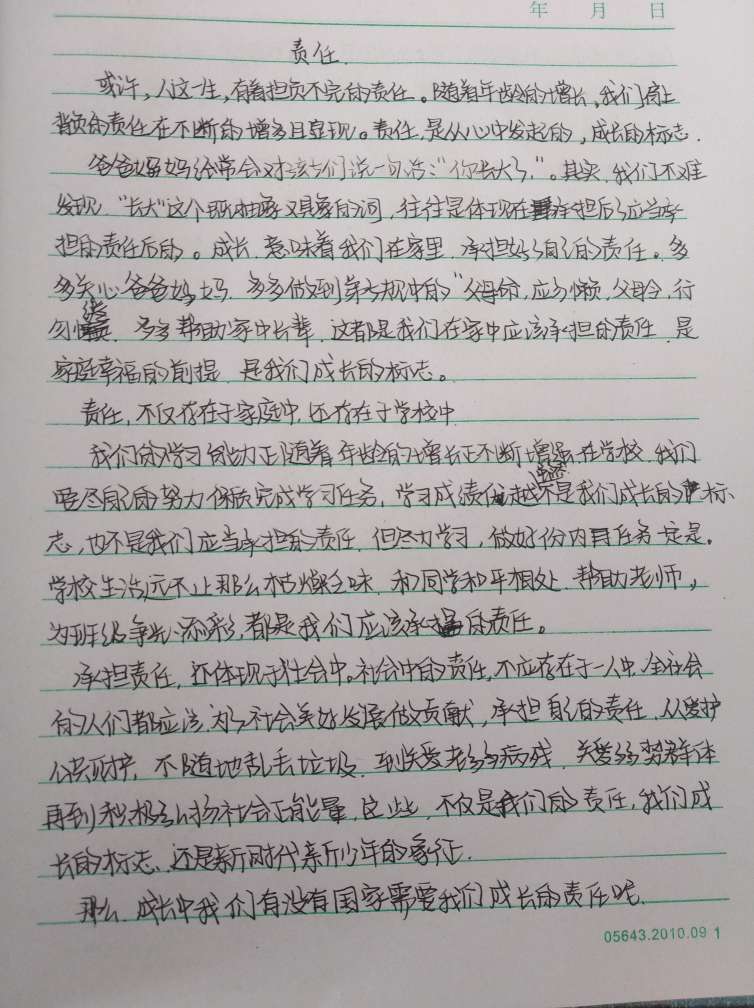 年 月 日
责任.
或许，人这一生，有着担负不完的责任。随着年龄的增长，我们肩上
背负的责任在不断的增多且显现。责任，是从心中发起的，成长的标志.
爸爸妈妈经常会对孩子们说一句话："你长大了."。其实，我们不难
发现，"长大"这个既抽象又具象的词，往往是体现在承担后了应当承
担的责任后的。成长，意味着我们在家里，承担好了自己的责任。多
多关心爸爸妈妈，多多做到弟子规中的"父母命，应勿懒，父母令，行
勿缓，多多帮助家中长辈，这都是我们在家中应该承担的责任，是
家庭幸福的前提，是我们成长的标志。
责任，不仅存在于家庭中，还存在于学校中.
我们的学习能力正随着年龄的增长正不断增强，在学校，我们
要尽自己的努力保质完成学习任务，学习成绩优越不是我们成长的标
志，也不是我们应当承担的责任，但尽力学习，做好份内任务一定是。
学校生活远不止那么枯燥乏味，和同学和平相处，帮助老师，
为班级争光添彩，都是我们应该承担的责任。
承担责任，还体现于社会中。社会中的责任，不应存在于一人中，全社会
的人们都应该为了社会美好发展做贡献，承担自己的责任，从爱护
公共财产，不随地乱丢垃圾，到关爱老弱病残，关爱弱势群体
再到积极弘扬社会正能量，这些，不仅是我们的责任，我们成
长的标志，还是新时代新少年的象征.
那么，成长中我们有没有国家需要我们成长的责任呢.
05643.2010.09 1